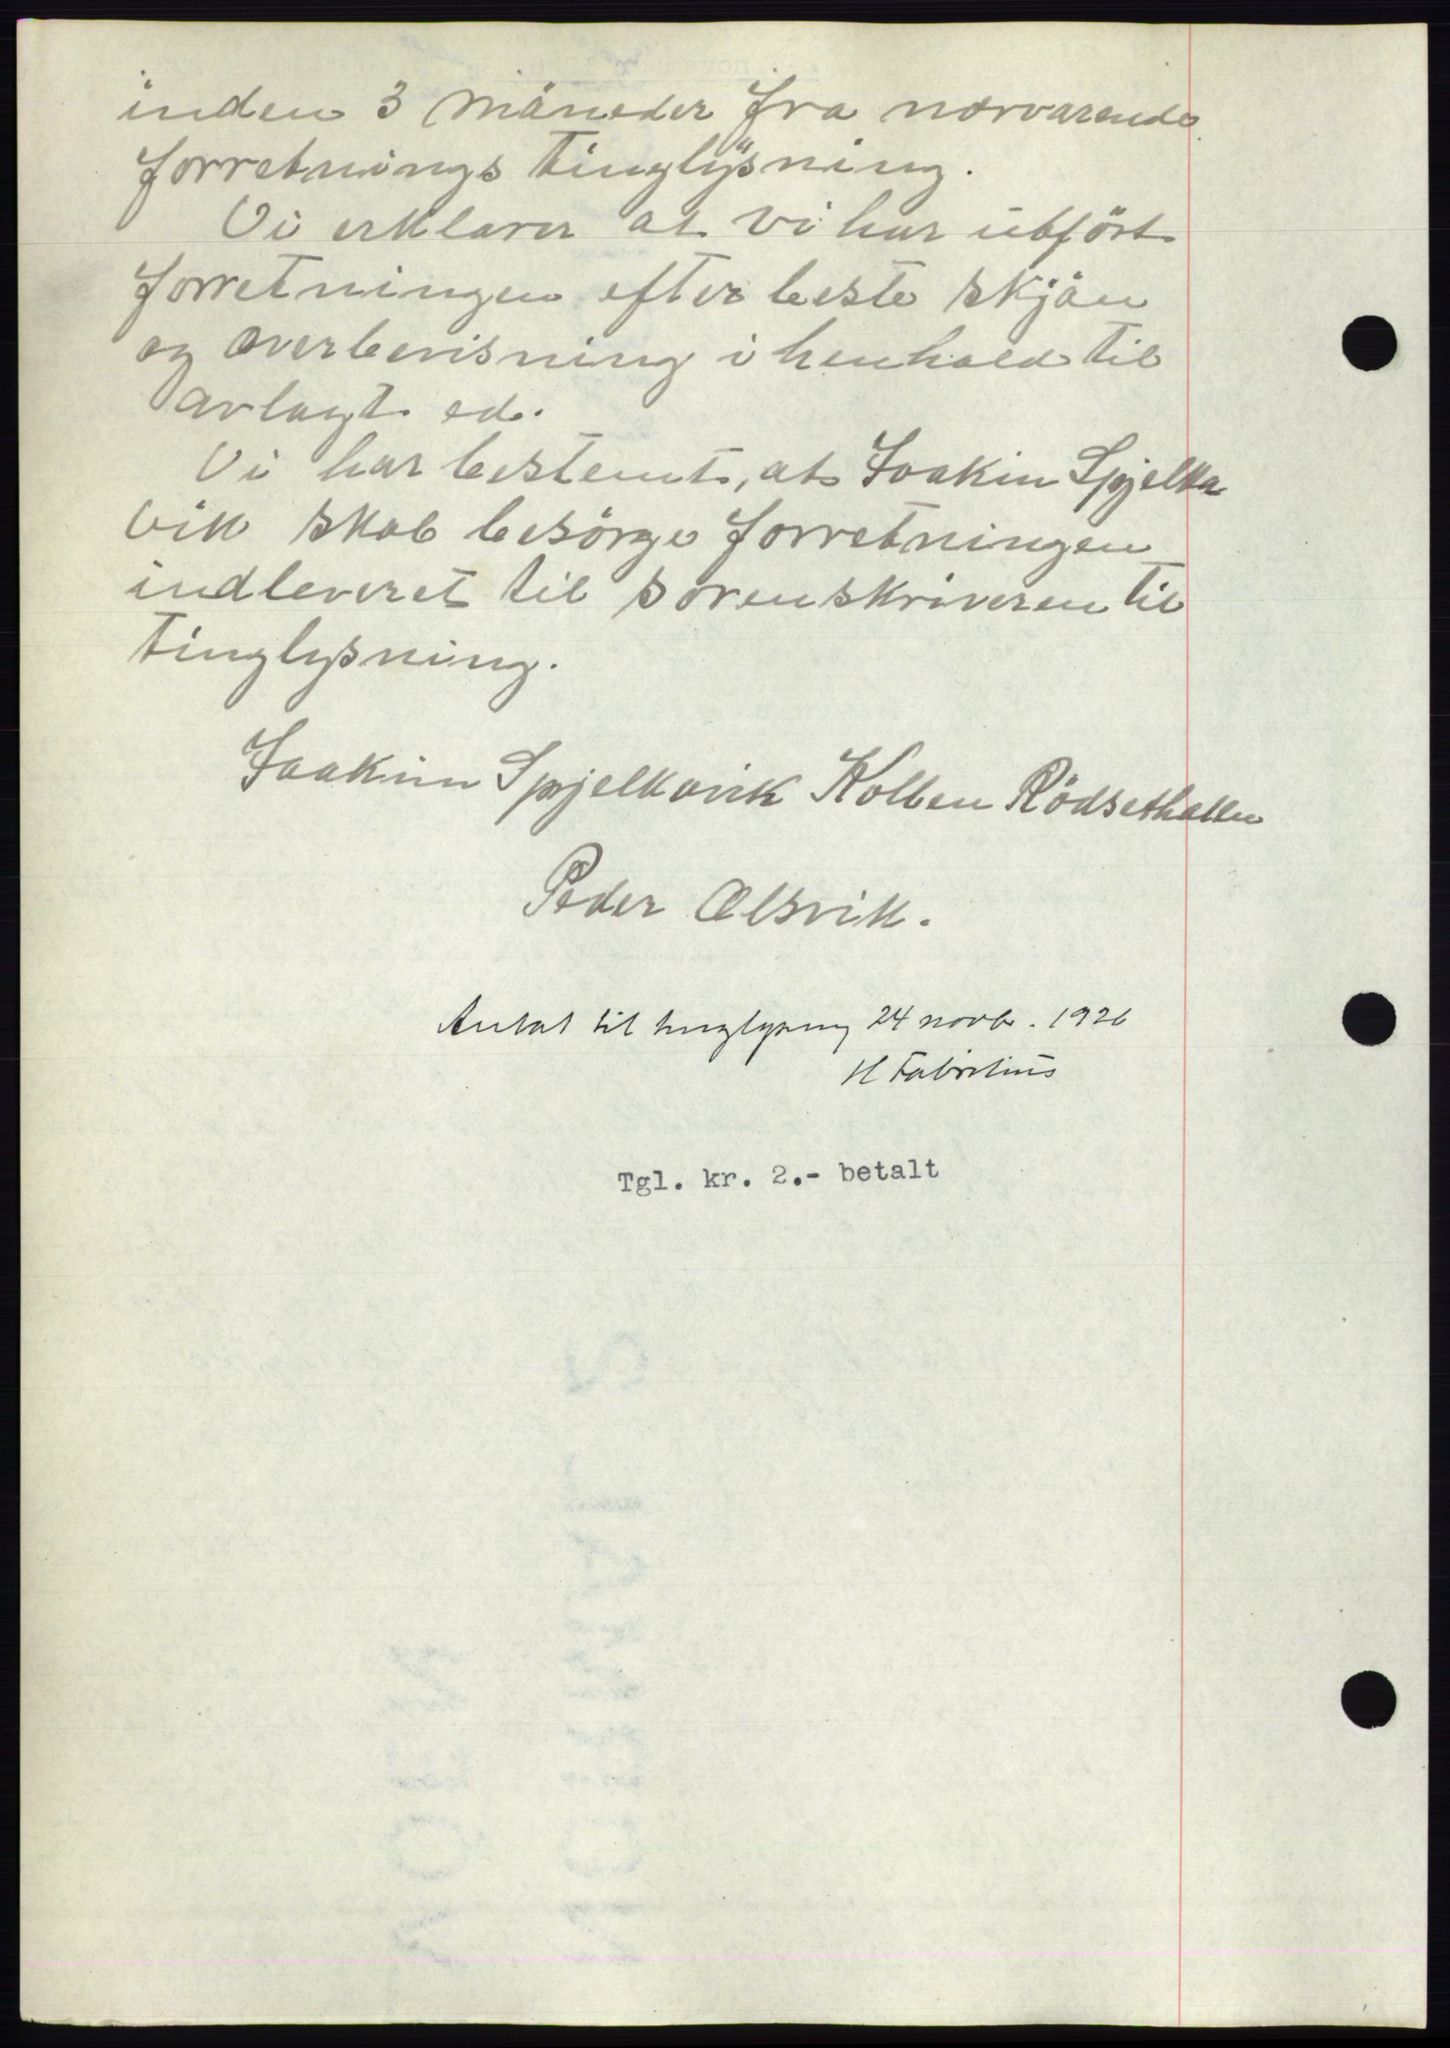 inden 3 Måneder fra nærværende
forretnings tinglysning.
Vi erklærer at vi har utfört
forretningen efter beste skjön
og overbevisning i henhold til
avlagt ed.
Vi har bestemt, at Joakim Spjelka
vik skal besörge forretningen
indleveret til sorenskriveren til
tinglysning.
Joakim Spjelkavik Kolben Rödsethallen
Peder Olsvik.
Antat til tinglysning 24 novbr. 1926
H Fabritius
Tgl. kr. 2.- betalt